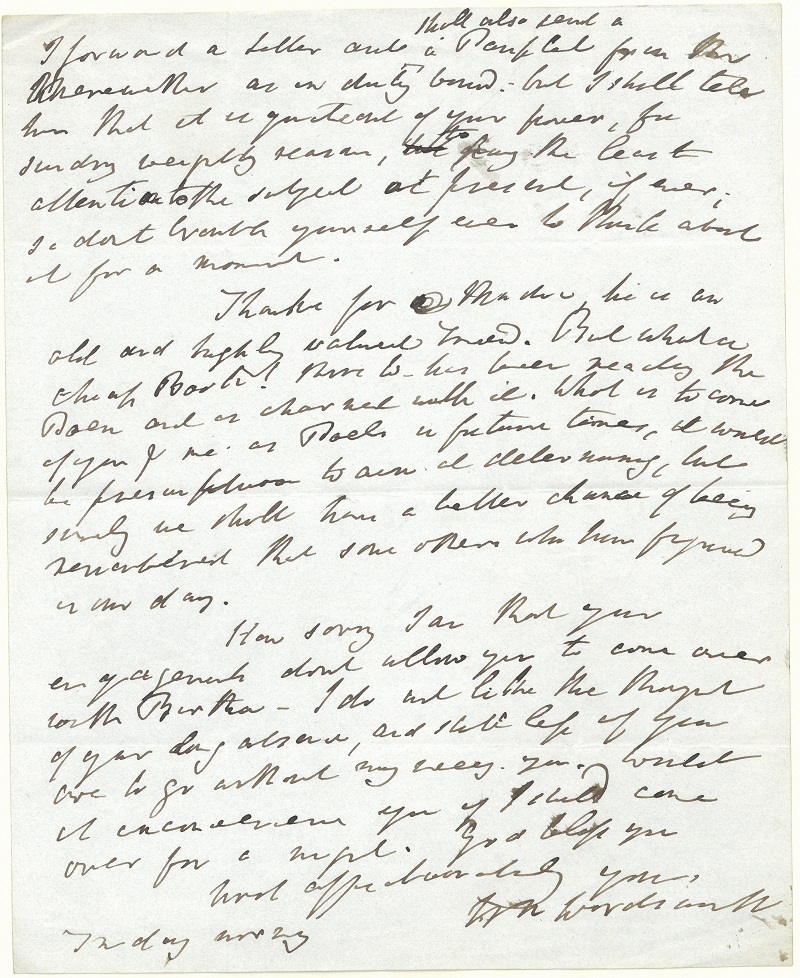 shall also send a
I forward a letter and a Pamphlet from the
wherewither as in duty bound - but I shall tell
him that it is quite out of your power, for
sundry weighty reasons, to pay the least
attention to the subject at present, if ever;
so dont trouble yourself even to think about
it for a moment.
Thanks for Madoc, he is an
old and highly valued Friend. But what a
cheap Book! has been reading the
Poem and is charmed with it. What is to come
of you & me as Poets in future times, it would
be presumptuous to aim at determining, but
surely we shall have a better chance of being
remembered than some others who have figured
in our day.
How sorry I am that your
engagements dont allow you to come over
with Bertha - I do not like the thought
of your long absence, and still less of your
to go without my seeing you. Would
it inconvenience you if I should come
over for a night. God bless you
most affectionately yours
Wm Wordsworth
morning